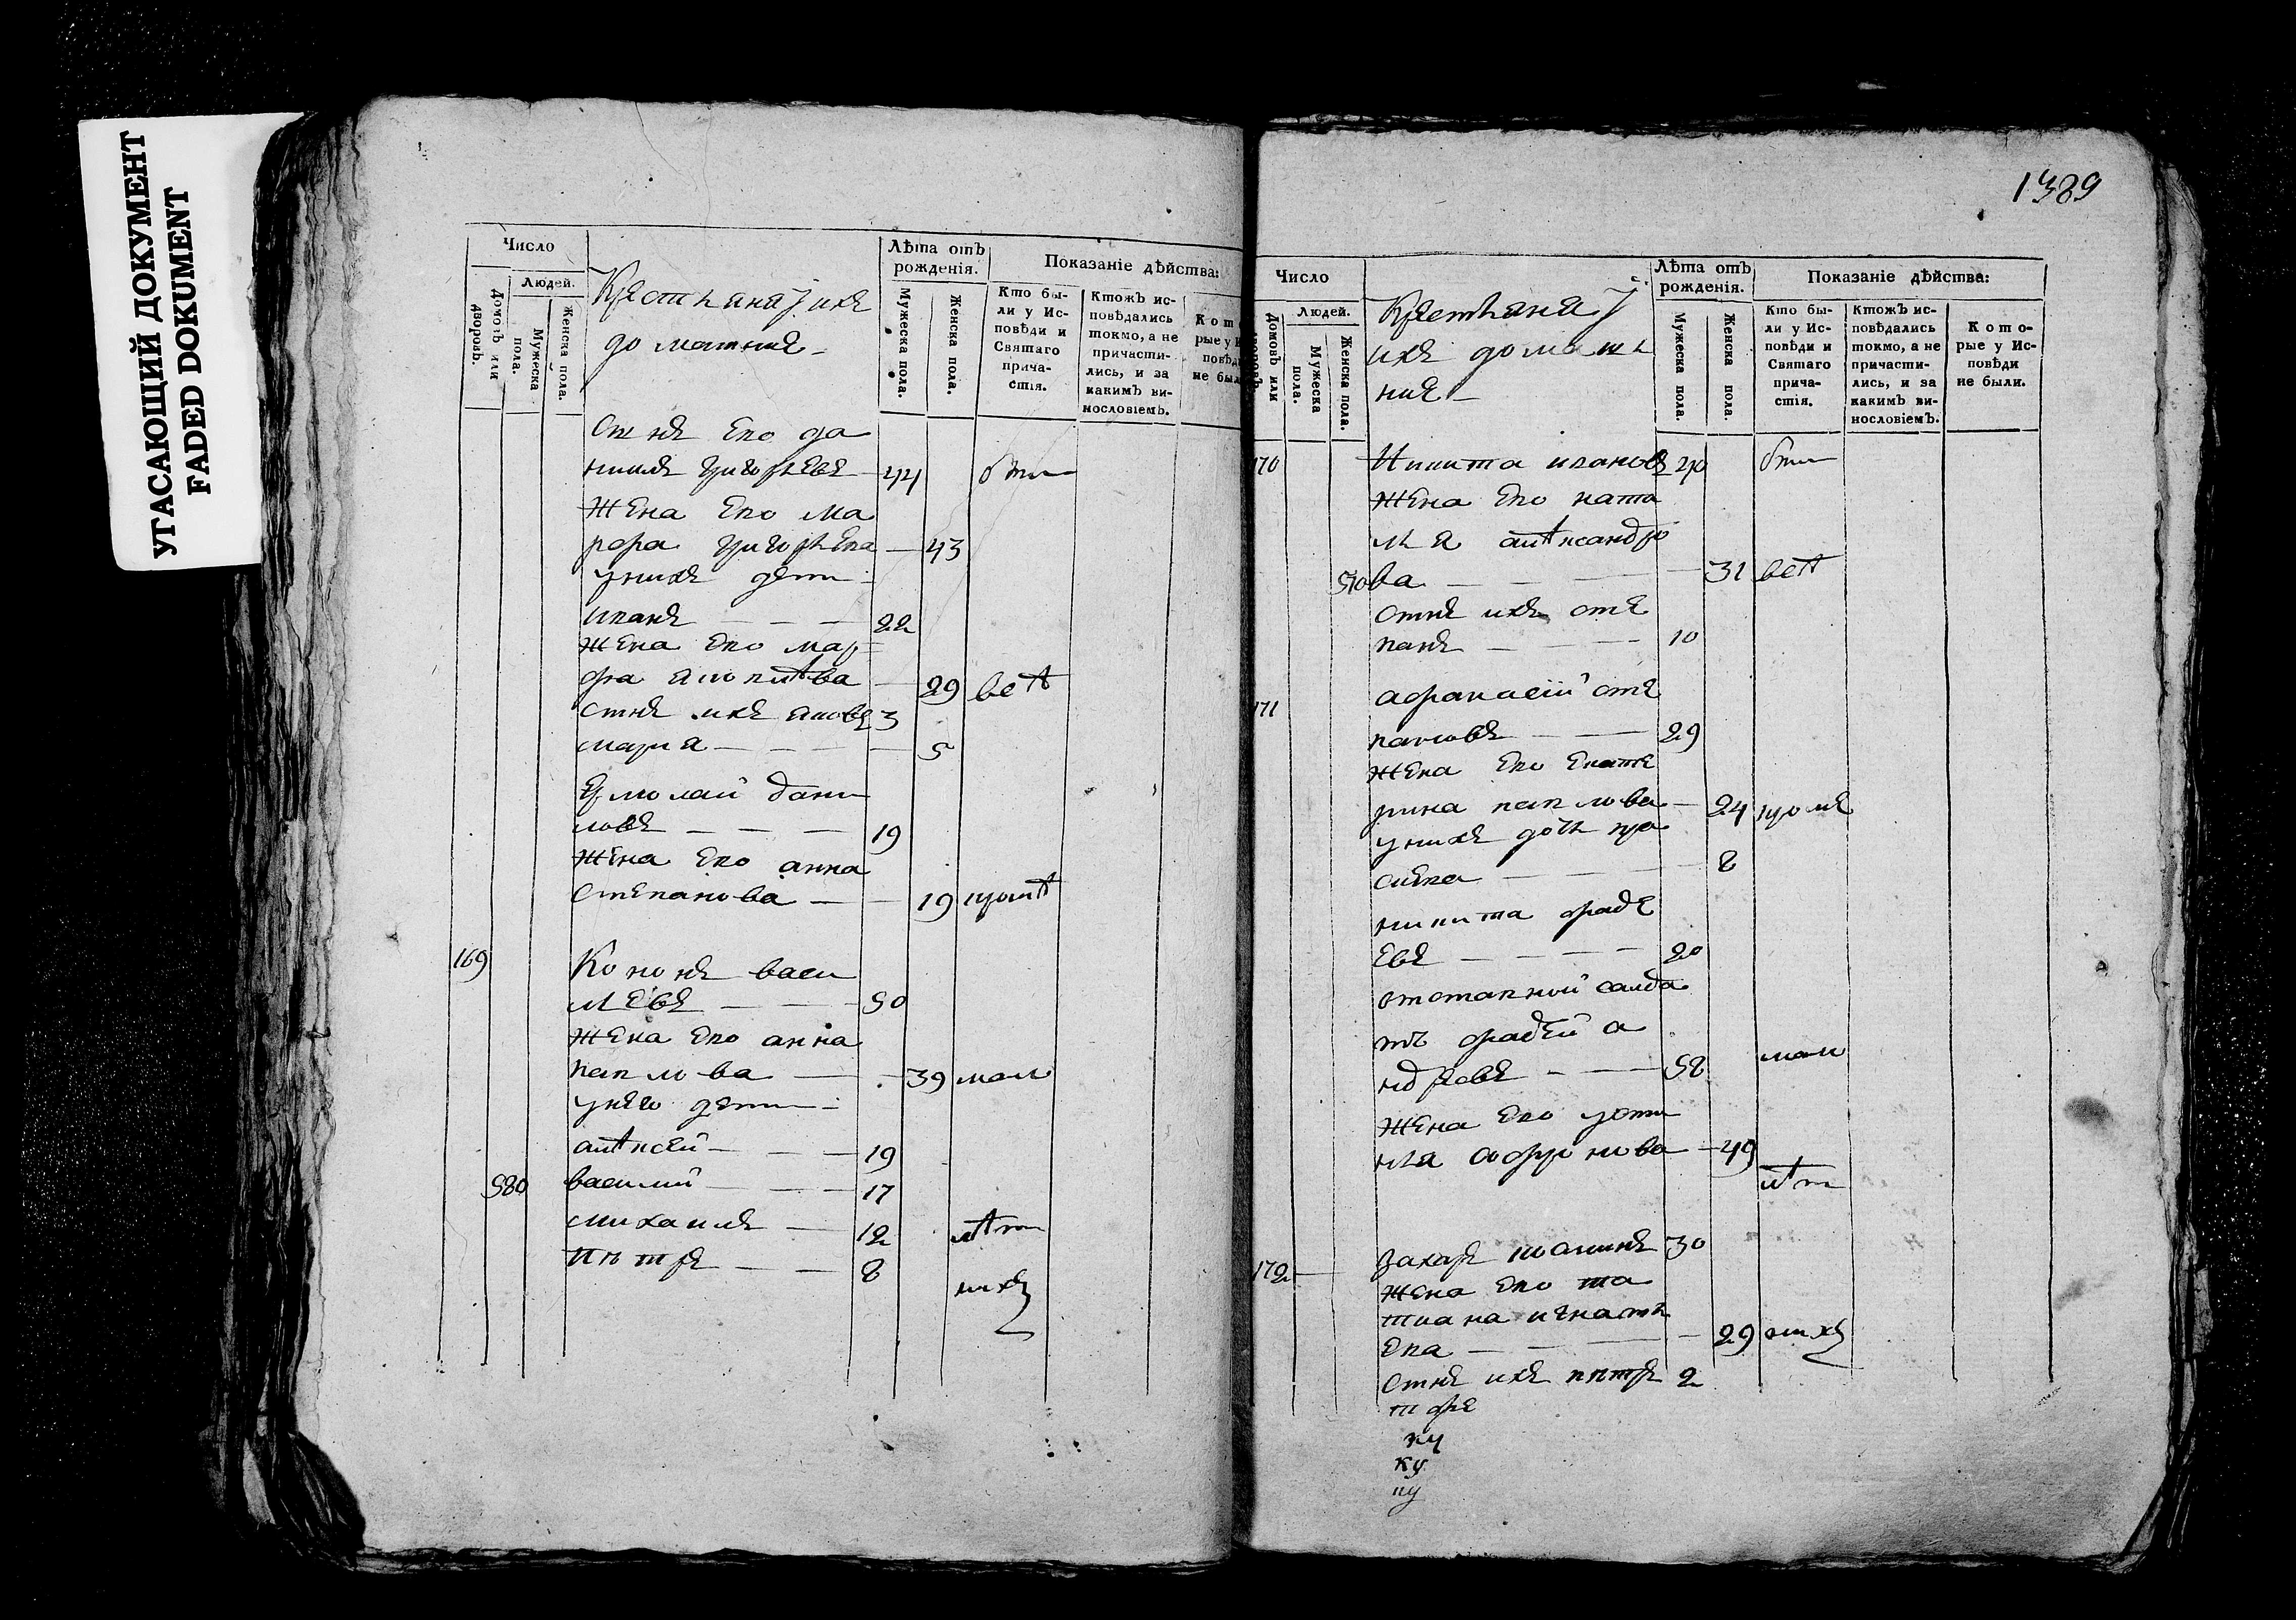 УГАСАЮЩИЙ ДОКУМЕНТ
FADED DOKUMENT
Число
Людей.
Домовъ или дворовъ.
Мужеска пола.
Женска пола.
Крестьяна ихъ
домашнiе
Лѣта отъ рожденія.
Мужеска пола.
Женска пола.
Показаніе дѣйства:
Кто бы-
ли у Ис-
повѣди и
Святаго
прича-
стія.
Ктожъ ис-
повѣдались
токмо, а не
причасти-
лись, и за
какимъ ви-
нословіемъ.
Сынъ Его да
нилъ григорьевъ 44
Жена Его ма
григорьева 43
у нихъ дети
иванъ 22
Жена Его мар
фа 29 всѣ
Сынъ ихъ яковъ 3
мария 5
Ермолай дани
ловъ 19
Жена Его анна
Степанова 19
169 Кононъ васи
льевъ 50
Жена Его анна
павлова 39 мал
у него дети
алѣксей 19
580 василий 17
михаилъ 12 лѣт
Пётръ 8 нихъ
1389
Число
Людей.
Домовъ или дворовъ.
Мужеска пола.
Женска пола.
Крестьяна
ихъ домашъ
ниѣ
Лѣта отъ
рожденія.
Мужеска пола.
Женска пола.
Показаніе дѣйства:
Кто бы-
ли у Ис-
повѣди и
Святаго
прича-
стія.
Ктожъ ис-
повѣдались
токмо, а не
причасти-
лись, и за
какимъ ви-
нословіемъ.
Кото-
рые у Ис-
повѣди
не были.
170 Никита ивановъ
Жена Его ната
лья алѣксандро
ва 31 всѣ
Сынъ ихъ сте
панъ 10
171 афанасiй сте
пановъ 29
Жена Его Екате
рина павлова 24 кроме
у нихъ дочь пра
8
никита фаде
евъ 20
отставной салда
тъ фадей а
ндреевъ 58 мал
Жена Его усти
нья софронова 49 лѣт
172 Захаръ 30
Жена Его та
тиана игнать
ева 29 нихъ
Сынъ ихъ пётръ 2